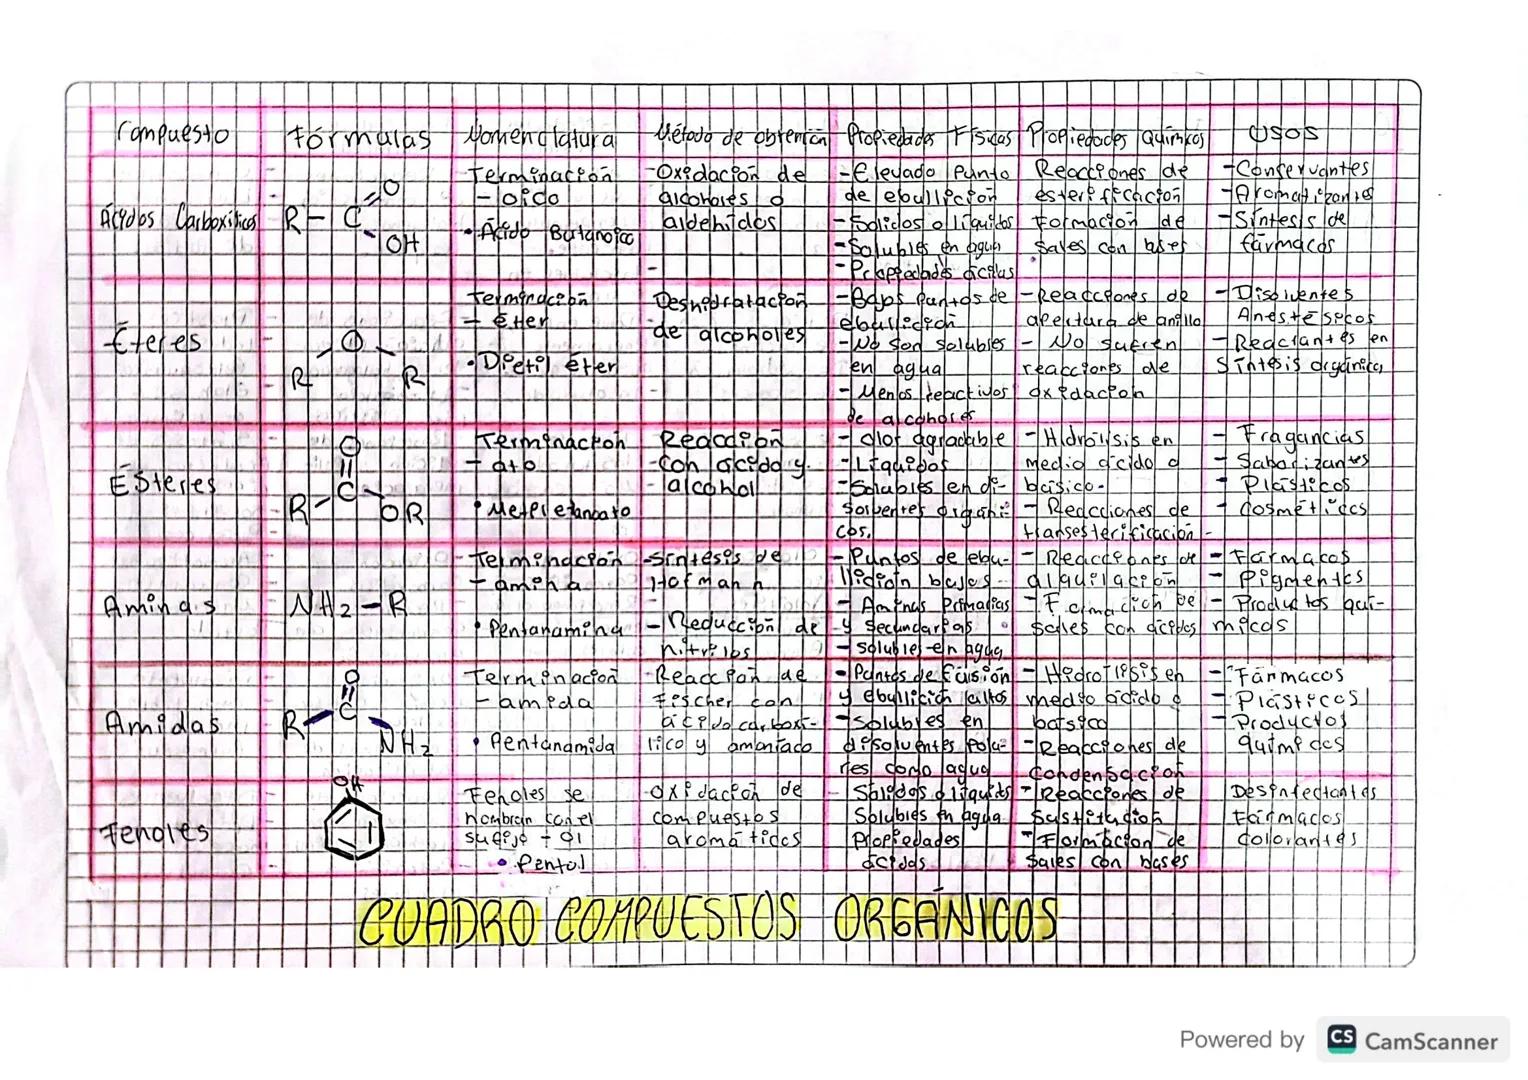 Compuesto Fórmulas Nomenclatura Método de obtención Propiedades Físicas Propiedades Químicas Usos
Ácidos Carboxílicos
R - C
O
OH
Terminación
- oico
• Ácido Butanoico
-Oxidación de
alcoholes o
aldehídos
-Elevado Punto
de ebullición
-Solidos o líquidos
-Solubles en agua
- Propiedades ácidas
Reacciones de
esterificación
Formación de
sales con bases
-Conservantes
-Aromatizantes
-Síntesis de
fármacos
Éteres
O
R R
Terminación
- éter
• Dietil éter
Deshidratación
de alcoholes
-Bajos puntos de
ebullición
-No son solubles
en agua
- Menos reactivos
de alcoholes
-Reacciones de
apertura de anillo
- No sufren
reacciones de
oxidación
- Disolventes
Anestésicos
-Reactantes en
Síntesis orgánica
Ésteres
O
R - C
OR
Terminación
- ato
Reacción
con ácido y
alcohol
- Olor agradable
-Líquidos
-Solubles en di-
solventes orgáni-
cos.
- Hidrólisis en
medio ácido o
básico.
- Reacciones de
transesterificación
- Fragancias
- Saborizantes
- Plásticos
- Cosméticos
Aminas
NH2 - R
Terminación
- amina
• Pentanamina
-Síntesis de
Hofmann
- Reducción de
nitrilos
- Puntos de ebu-
llición bajos
- Aminas Primarias
y secundarias
- solubles en agua
- Reacciones de
alquilación
- Formación de
sales con ácidos
- Fármacos
- Pigmentos
- Productos quí-
micos
Amidas
O
R - C
NH2
Terminación
- amida
• Pentanamida
-Reacción de
Fischer con
ácido carboxí-
lico y amoniaco
-Puntos de fusión
y ebullición altos
-Solubles en
disolventes pola-
res como agua
- Hidrólisis en
medio ácido o
básico
-Reacciones de
Condensación
- Fármacos
- Plásticos
- Productos
químicos
Fenoles
OH
Fenoles se
nombran con el
sufijo - ol
• Pentol
-Oxidación de
compuestos
aromáticos
Solidos o líquidos
Solubles en agua
Propiedades
ácidas
- Reacciones de
Sustitución
- Formación de
sales con bases
Desinfectantes
Fármacos
colorantes
CUADRO COMPUESTOS ORGÁNICOS
Powered by CS CamScanner